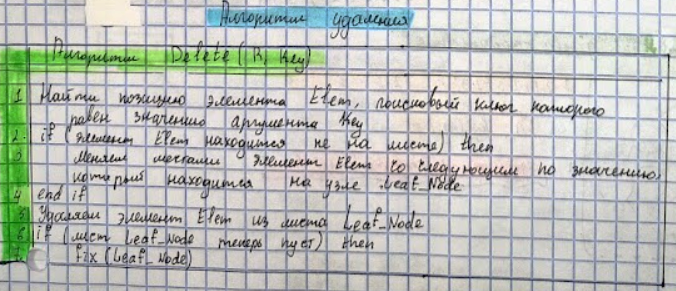 Алгоритм удаления
Алгоритм Delete (R, Key)
1 Найти позицию элемента Elem, поисковый ключ которого
равен значению аргумента Key
2 if (элемент Elem находится не на листе) then
3 Меняем местами элемент Elem со следующим по значению,
который находится на узле Leaf_Node
4 end if
5 Удаляем элемент Elem из листа Leaf_Node
6 if (лист Leaf_Node теперь пуст) then
7 fix (Leaf_Node)